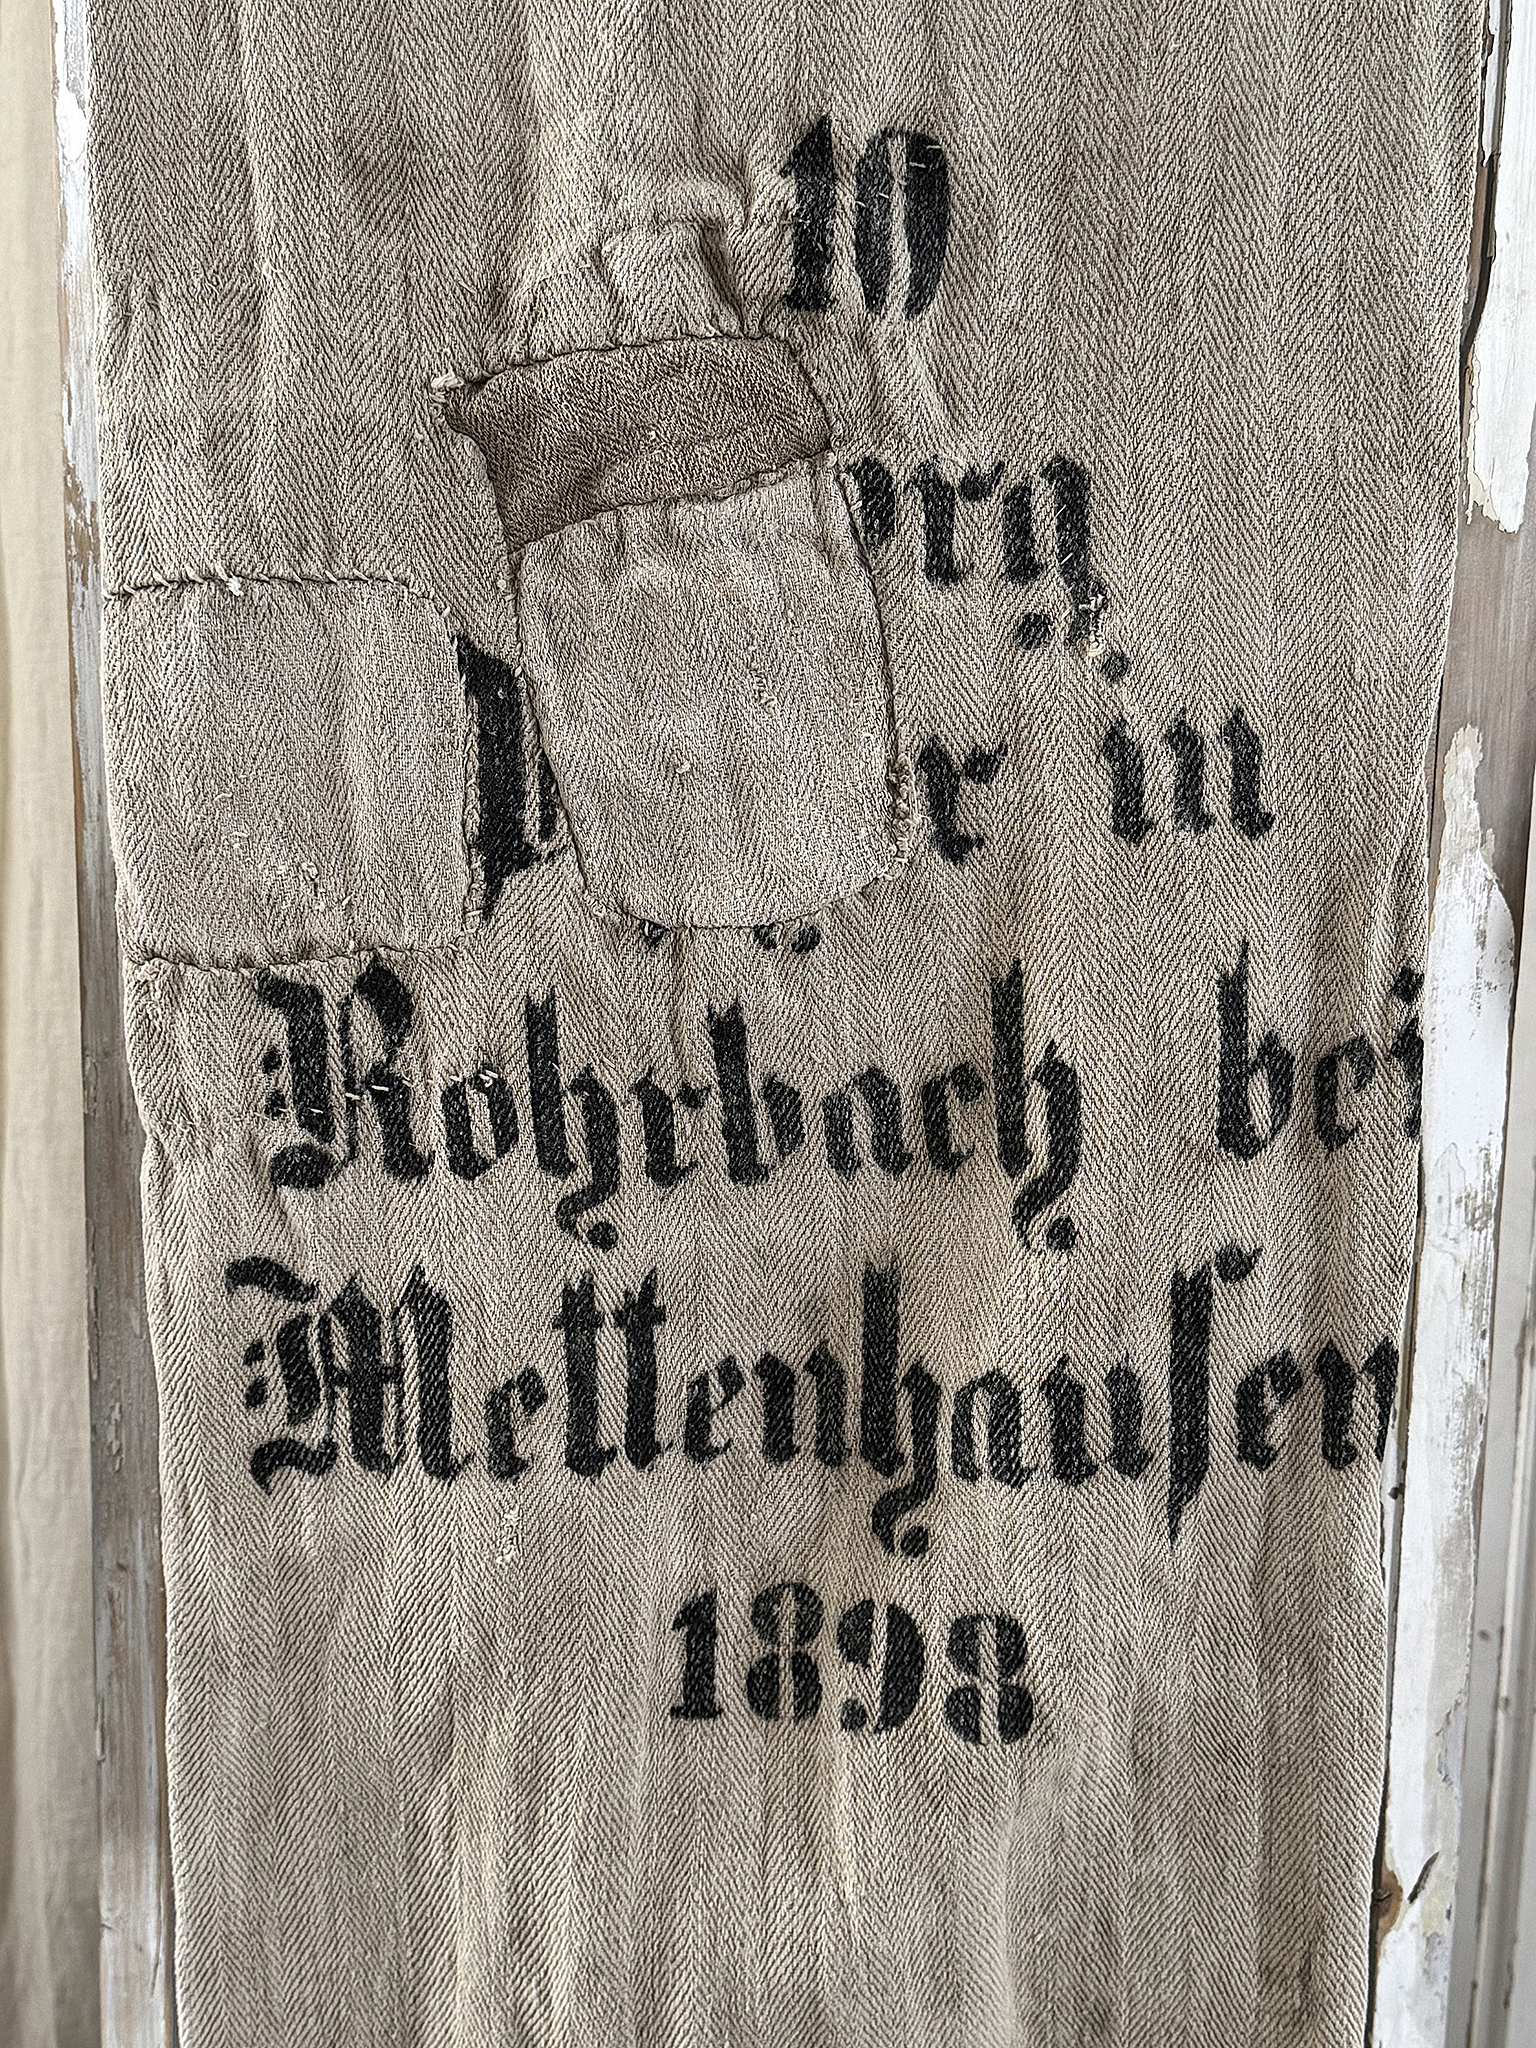 10
in
Rohrbach bei
Mettenhauſen
1898